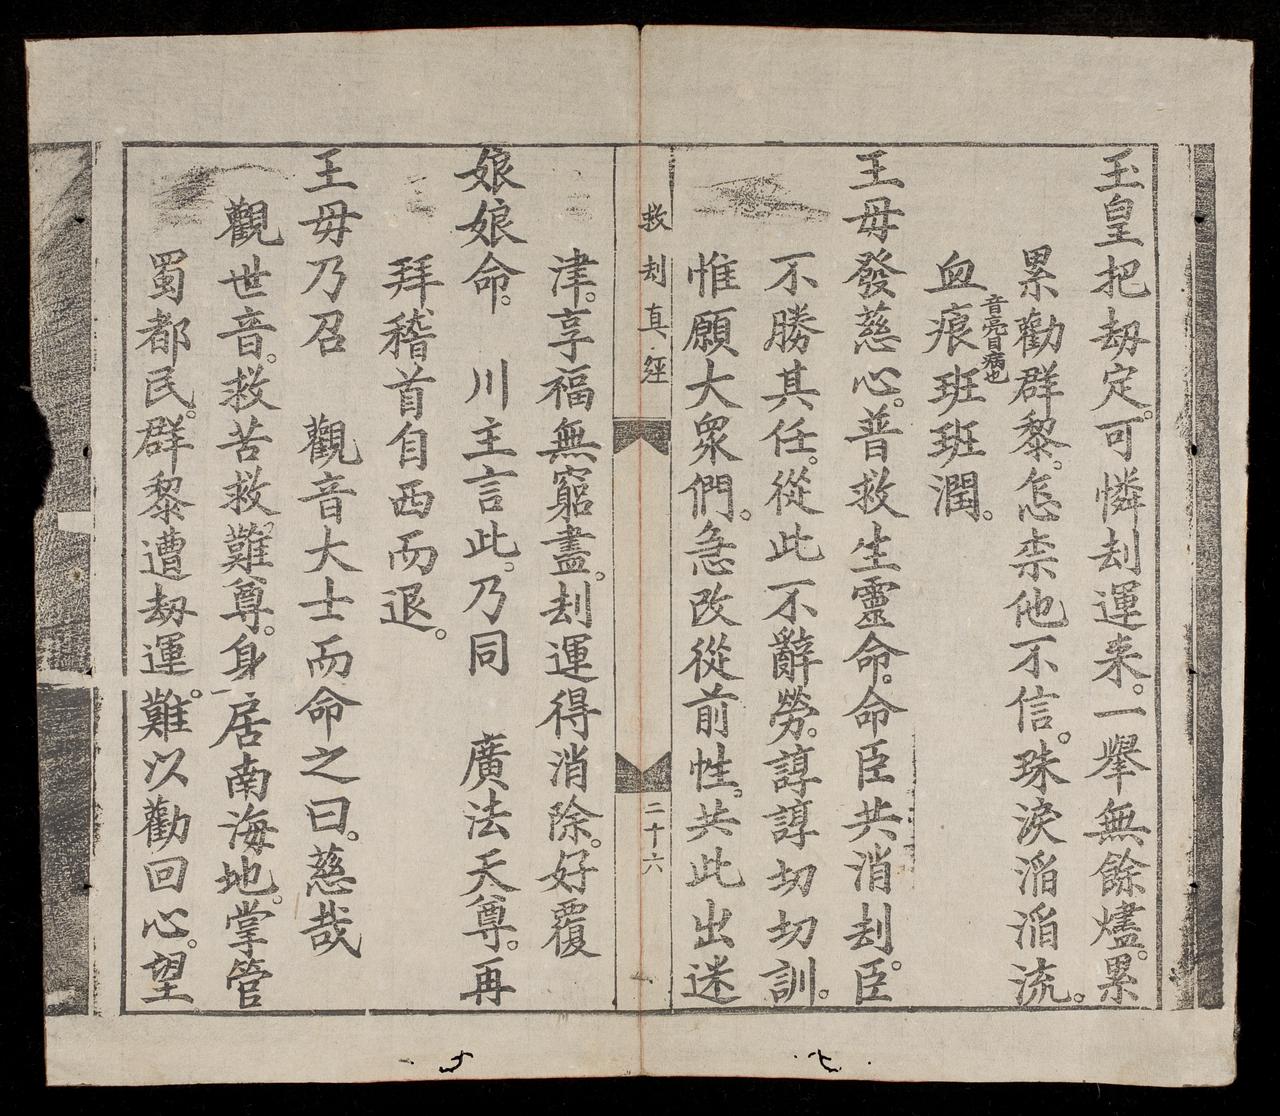 玉皇把刼定。可憐刦運来。一舉無餘燼。累
累勸群黎。怎柰他不信。珠淚滔滔流。
血痕音亮目病也班班潤。
王母發慈心。普救生靈命。命臣共消刦。臣
不勝其任。從此不辭勞。諄諄切切訓。
惟願大衆們。急改從前性。共此出迷
救刦真經
二十六
津。享福無窮盡。刦運得消除。好覆
娘娘命。川主言此。乃同廣法天尊。再
拜稽首自西而退。
王母乃召觀音大士而命之曰。慈哉
觀世音。救苦救難尊。身居南海地。掌管
蜀都民。群黎遭刼運。難以勸回心。望